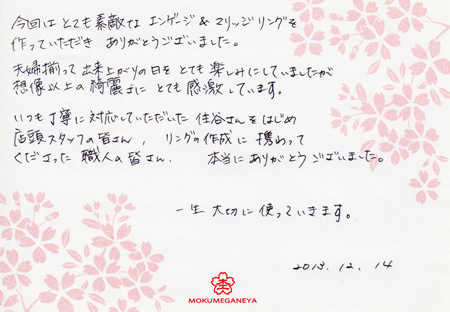 今回は とても素敵な エンゲージ & マリッジリングを
作っていただき ありがとうございました。
夫婦揃って 出来上がりの日を とても 楽しみにしていましたが
想像以上の 綺麗さに とても 感激しています。
いつも丁寧に 対応していただいた 住谷さんをはじめ
店頭スタッフの皆さん、リングの作成に 携わって
くださった 職人の皆さん、 本当にありがとうございました。
一生 大切に 使っていきます。
2013. 12. 14
MOKUMEGANEYA